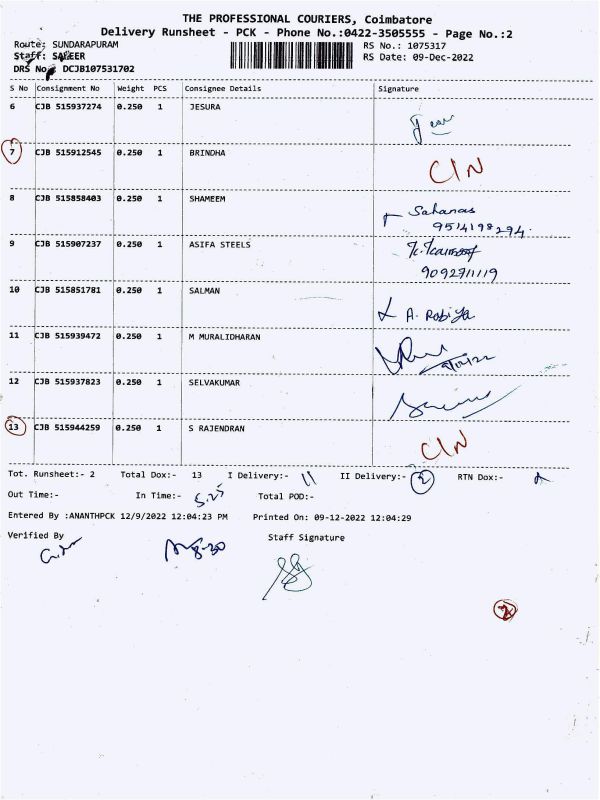 THE PROFESSIONAL COURIERS, Coimbatore
Delivery Runsheet - PCK - Phone No.:0422-3505555 - Page No.:2
Route: SUNDARAPURAM RS No.: 1075317
Staff: SAJEER RS Date: 09-Dec-2022
DRS No DCJB107531702
S No Consignment No Weight PCS Consignee Details Signature
6 CJB 515937274 0.250 1 JESURA
7 CJB 515912545 0.250 1 BRINDHA C/N
8 CJB 515858403 0.250 1 SHAMEEM Sahanas
9514198294.
9 CJB 515907237 0.250 1 ASIFA STEELS
9092711119
10 CJB 515851781 0.250 1 SALMAN A. Robiya
11 CJB 515939472 0.250 1 M MURALIDHARAN
12 CJB 515937823 0.250 1 SELVAKUMAR
13 CJB 515944259 0.250 1 S RAJENDRAN C/N
Tot. Runsheet:- 2 Total Dox:- 13 I Delivery:- 11 II Delivery:- 2 RTN Dox:-
Out Time:- In Time:- 5.25 Total POD:-
Entered By :ANANTHPCK 12/9/2022 12:04:23 PM Printed On: 09-12-2022 12:04:29
Verified By Staff Signature
8-30
2